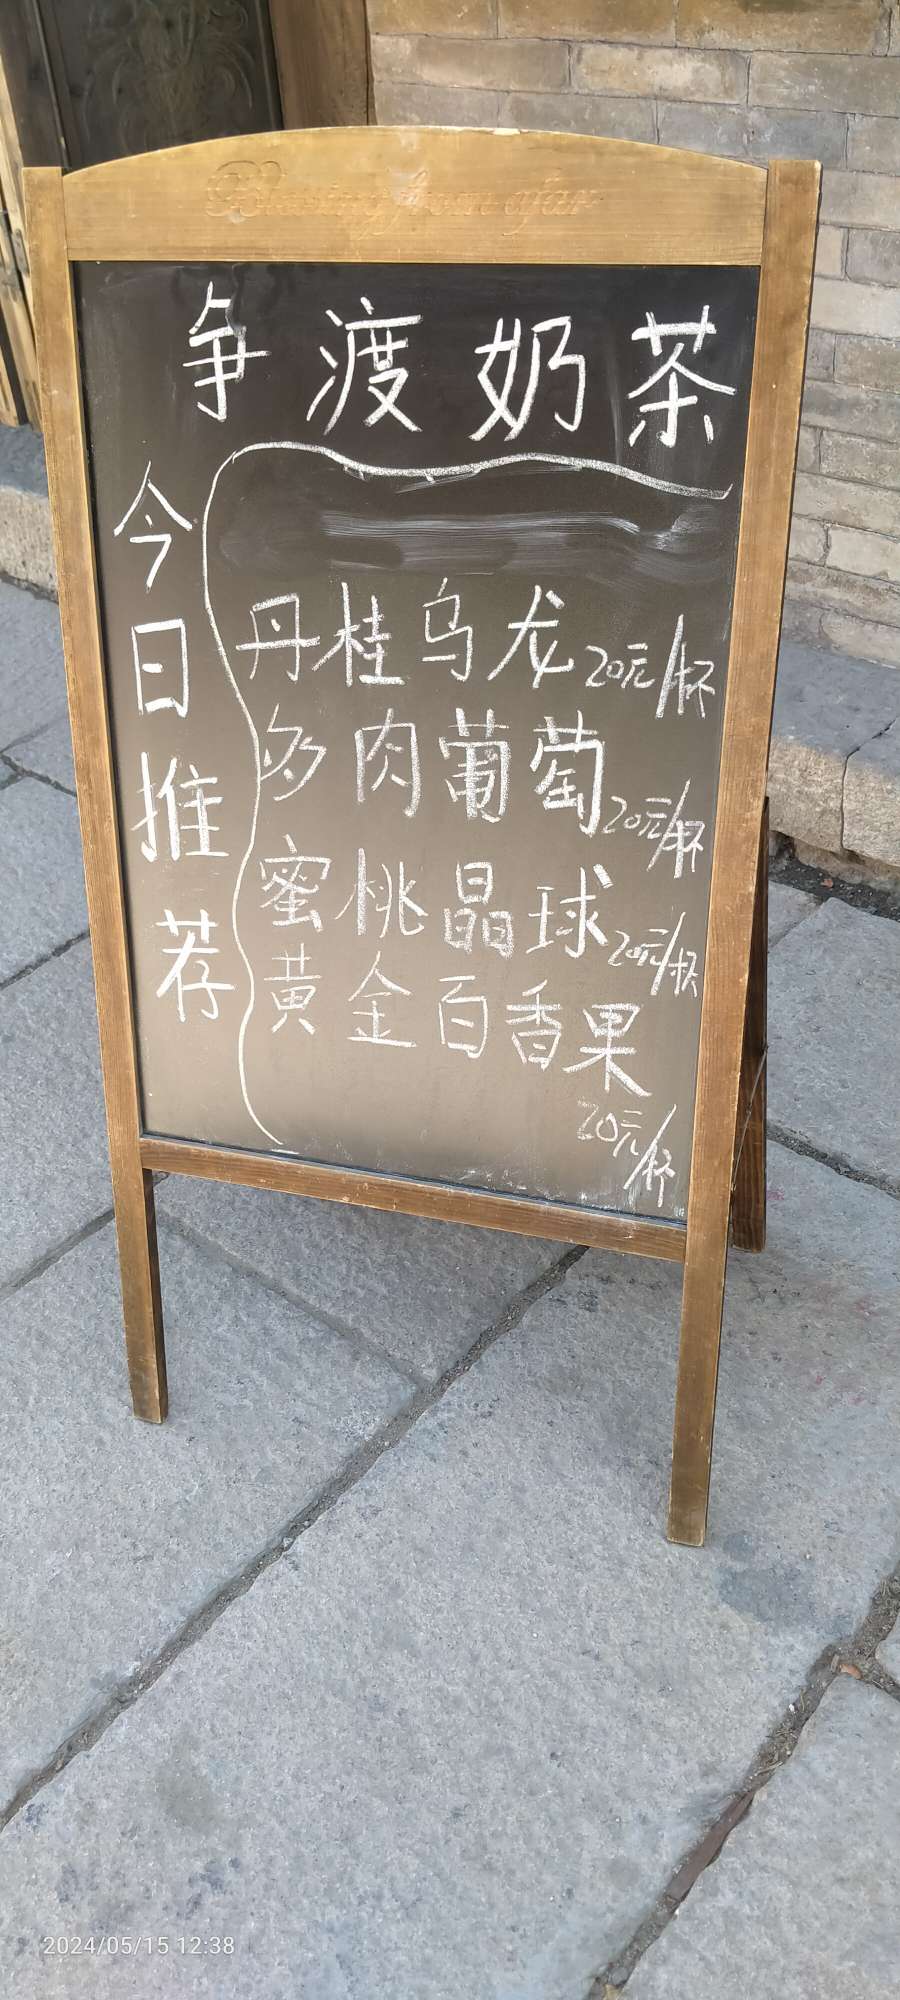 争渡奶茶
今日推荐
丹桂乌龙20元/杯
多肉葡萄20元/杯
蜜桃晶球20元/杯
黄金百香果
20元/杯
2024/05/15 12:38